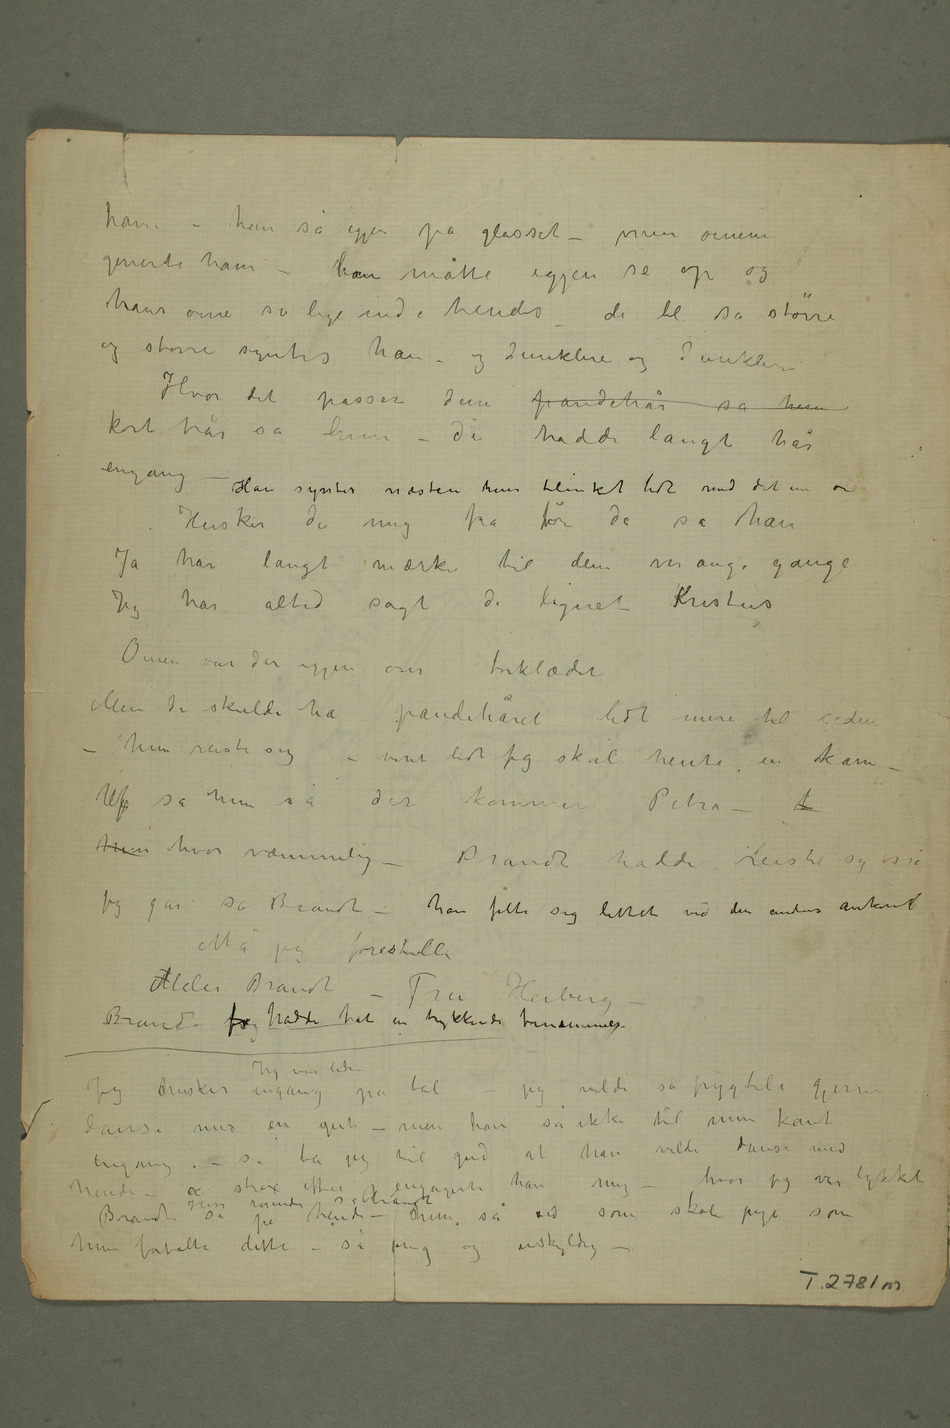 ham – han så igjen på glasset – men øinene
generte ham – han måtte igjen se op og
hans øine så lige ind i hendes – de ble så större
og større syntes han – og dunklere og dunklere
Hvor det passer dem pandehår sa hun
kort hår sa hun – De hadde langt hår
engang –
Han syntes næsten hun blinket lidt med det ene øie
Husker De mig fra før da sa han
Ja har langt mærke til dem mange gange
Jeg har altid sagt De lignet Kristus
Øinene var der igjen over tørklædet
Men De skulde ha pandehåret lidt mere til siden
– hun reiste sig – vent lidt jeg skal hente en kam –
Uf sa hun så der kommer Petra –
hun hvor væmmelig – Brandt hadde reist sig også
Jeg går sa Brandt – han følte sig lettet ved den andens ankomst
Må jeg forestille
Maler Brandt – Fru Heiberg –
Brandt hadde hat en trykkende fornemmelse
Jeg var liden
Jeg husker engang på bal – jeg vilde så frygteli gjerne
danse med en gut – men han så ikke til min kant
engang – så ba jeg til gud at han vilde danse med
hende – og strax efter engagerte han mig – hvor jeg var lykkelig
Brandt så på hende – hun så ud som skolepige som
hun fortalte dette – så ung og uskyldig –
T.2781